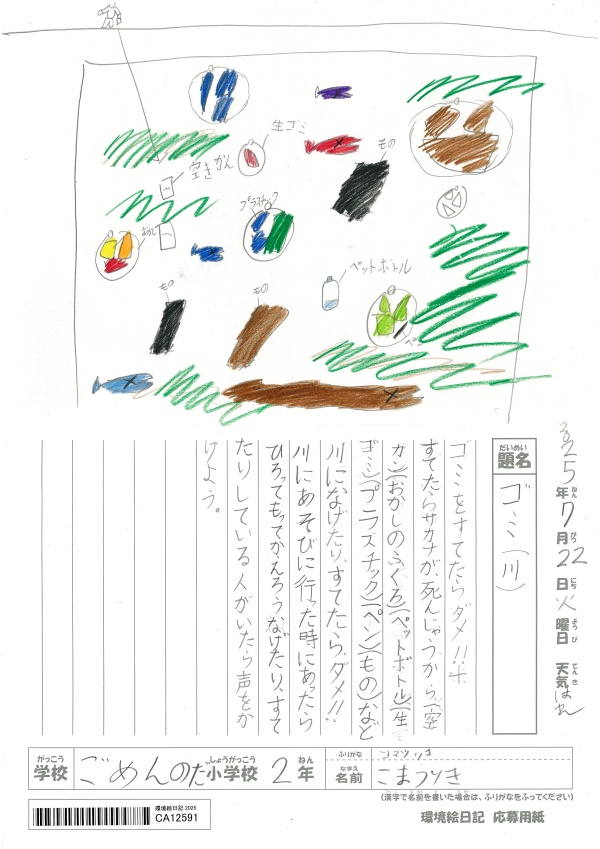 生ゴミ
もの
空きかん
プラスチック
おかし
ペットボトル
もの
もの
ペ
2025年7月22日火曜日 天気はれ
ねん がつ にち ようび てんき
だいめい
題名 ゴミ(川)
ゴミをすてたらダメ!!ポ
すてたらサカナが、死んじゃうから(空
カン)(おかしのふくろ)(ペットボトル)(生
ゴミ)(プラスチック)(ペン)(もの)など
川になげたり、すてたら、ダメ!!
川にあそびに行った時にあったら
ひろってもってかえろうなげたり、すて
たりしている人がいたら声をか
けよう。
がっこう しょうがっこう ねん ふりがな
学校 ごめんのだ小学校 2年
なまえ
名前 こまつりき
(漢字で名前を書いた場合は、ふりがなをふってください)
環境絵日記 2025
CA12591
環境絵日記 応募用紙